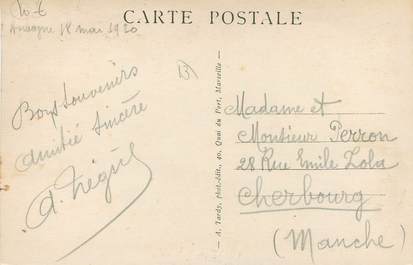 CARTE POSTALE
Aubagne 18 mai 1920
Bons souvenirs
Amitié sincère
A. Tardy, phot-édit., 90, Quai du Port, Marseille
Madame et
Monsieur Perron
28 Rue Emile Zola
Cherbourg
(Manche)